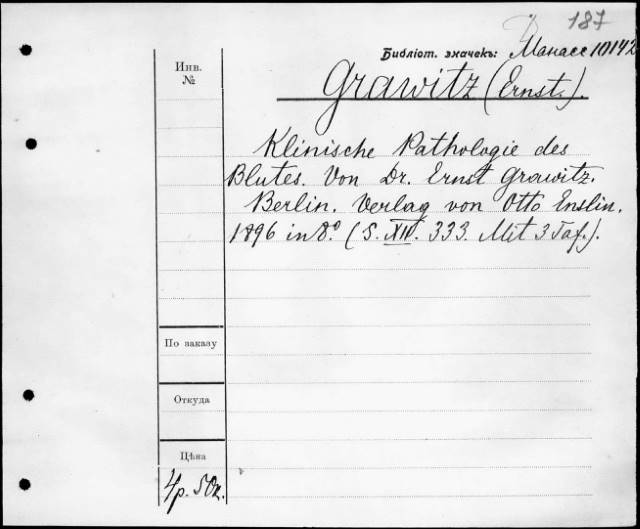 187
Библіот. значекъ: Манасс 10142
Инв.
№
Grawitz (Ernst).
Klinische Pathologie des
Blutes. Von Dr. Ernst Grawitz.
Berlin. Verlag von Otto Enslin.
1896 in 8º. (S. XIV. 333. Mit 3 Taf.).
По заказу
Откуда
Цѣна
4р. 50к.